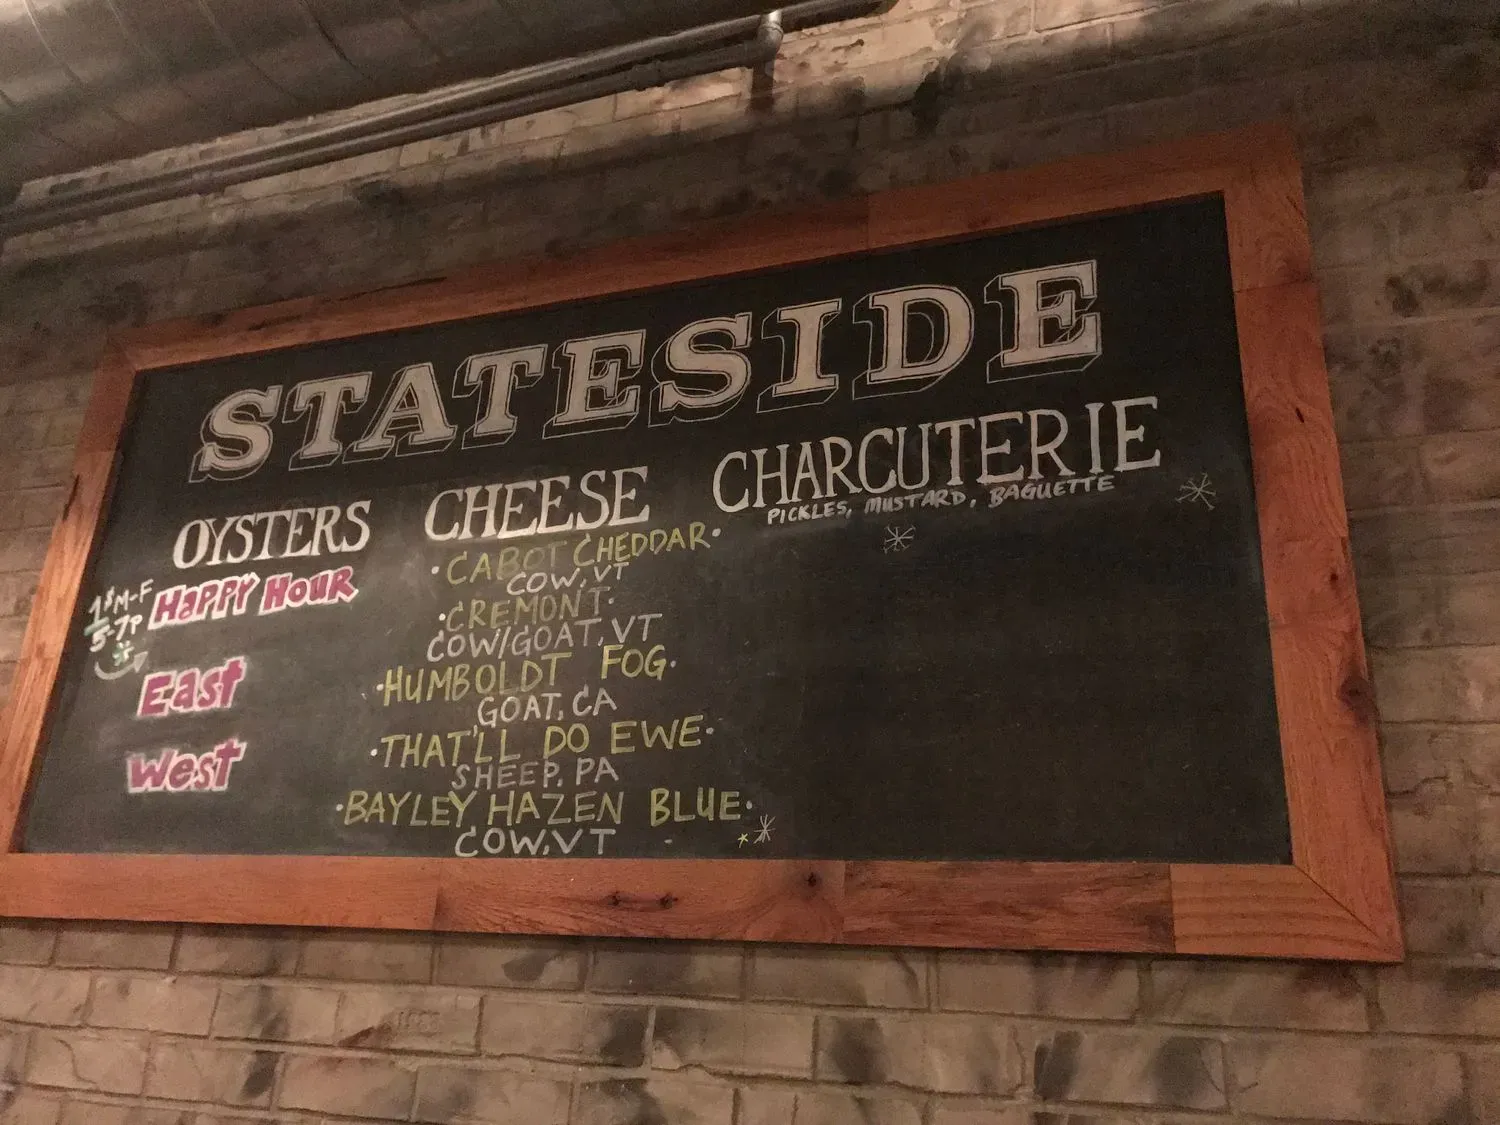 STATESIDE
OYSTERS
1$ M-F
5-7P
HAPPY HOUR
East
West
CHEESE
·CABOT CHEDDAR·
COW, VT
·CREMONT·
COW/GOAT, VT
·HUMBOLDT FOG·
GOAT, CA
·THAT'LL DO EWE·
SHEEP, PA
·BAYLEY HAZEN BLUE·
COW, VT
CHARCUTERIE
PICKLES, MUSTARD, BAGUETTE